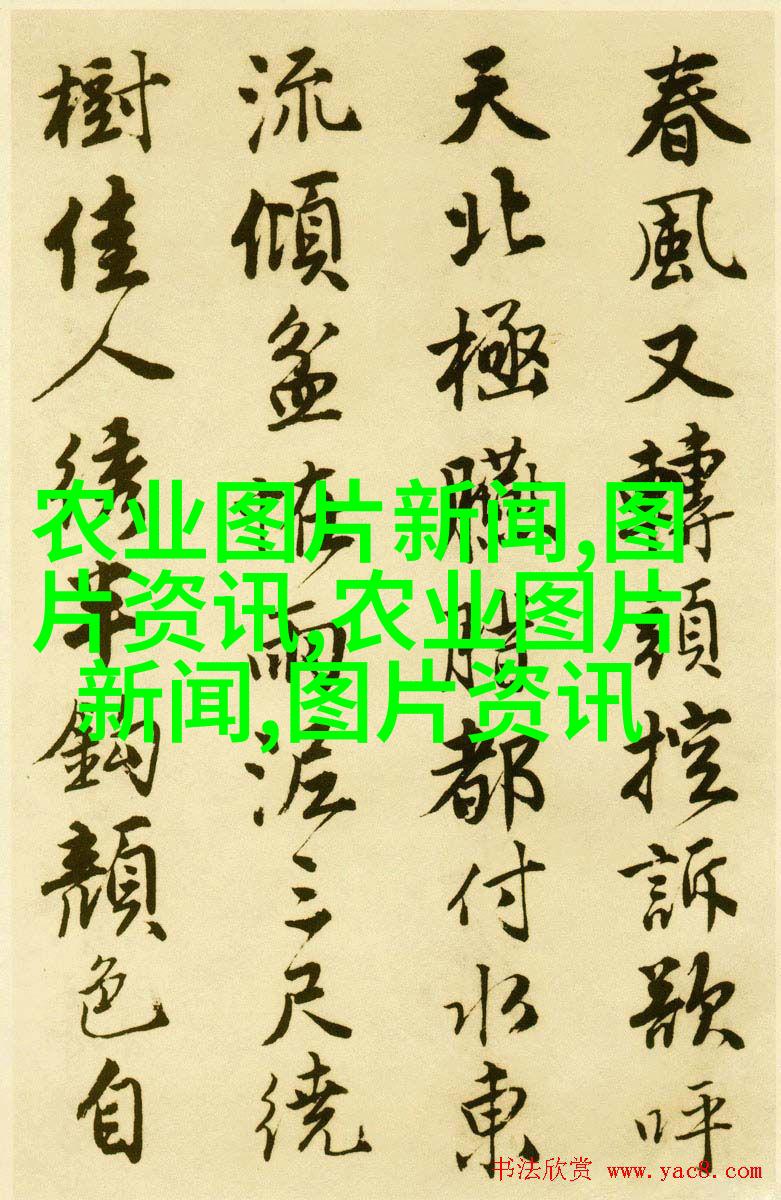 春風又轉頭控訴歌呼
天北極都付水東
流傾盆雨三尺繞
樹佳人綉半鈎顏色自
农业图片新闻,图
片资讯,农业图片
新闻,图片资讯
书法欣赏 www.yac8.com